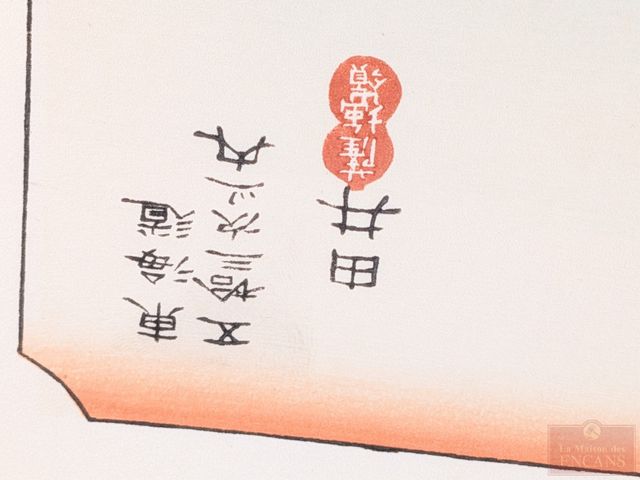 東海道
五拾三次之内
由井
薩埵嶺
La Maison des
ENCANS